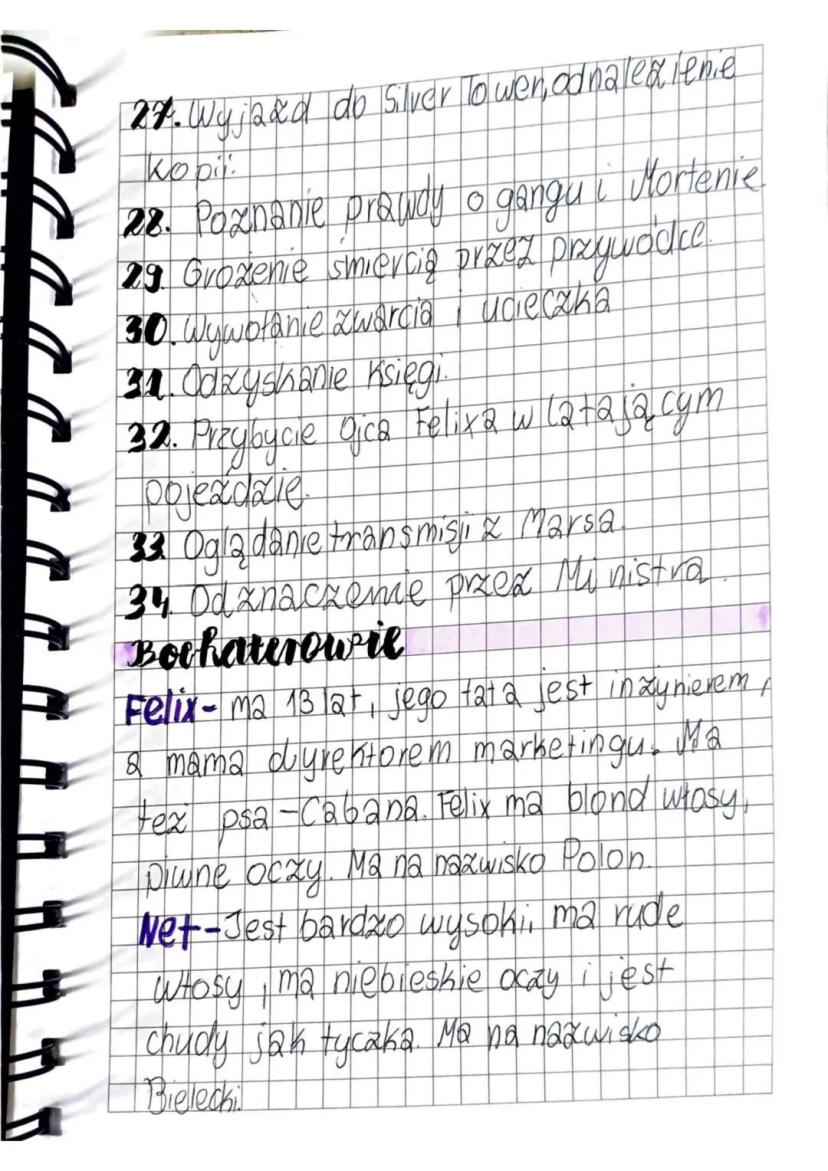 27. Wyjazd do Silver Tower, odnalezienie
kopii.
28. Poznanie prawdy o gangu i Mortenie
29. Grożenie śmiercią przez przywódce.
30. Wywołanie zwarcia i ucieczka
31. Odzyskanie Księgi.
32. Przybycie ojca Felixa w latającym
pojeździe.
33. Oglądanie transmisji z Marsa.
34. Odznaczenie przez Ministra.
Bochaterowie
Felix- ma 13 lat, jego tata jest inżynierem,
a mama dyrektorem marketingu. Ma
też psa - Cabana. Felix ma blond włosy,
piwne oczy. Ma na nazwisko Polon.
Net - Jest bardzo wysoki, ma rude
włosy, ma niebieskie oczy i jest
chudy jak tyczka. Ma na nazwisko
Bielecki.